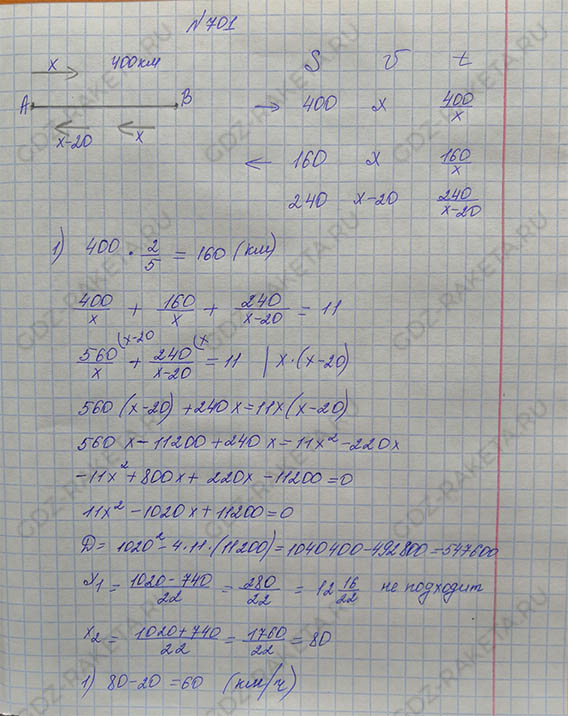 №701
x 400км S v t
A B → 400 x 400/x
x-20 x ← 160 x 160/x
240 x-20 240/x-20
1) 400 · 2/5 = 160 (км)
400/x + 160/x + 240/x-20 = 11
560/x (x-20 + 240/x-20 (x = 11 | x·(x-20)
560 (x-20) + 240x = 11x(x-20)
560x - 11200 + 240x = 11x² - 220x
-11x² + 800x + 220x - 11200 = 0
11x² - 1020x + 11200 = 0
D = 1020² - 4·11·(11200) = 1040400 - 492800 = 547600
x₁ = 1020-740/22 = 280/22 = 12 16/22 не подходит
x₂ = 1020+740/22 = 1760/22 = 80
1) 80-20 = 60 (км/ч)
GDZ-RAKETA.RU